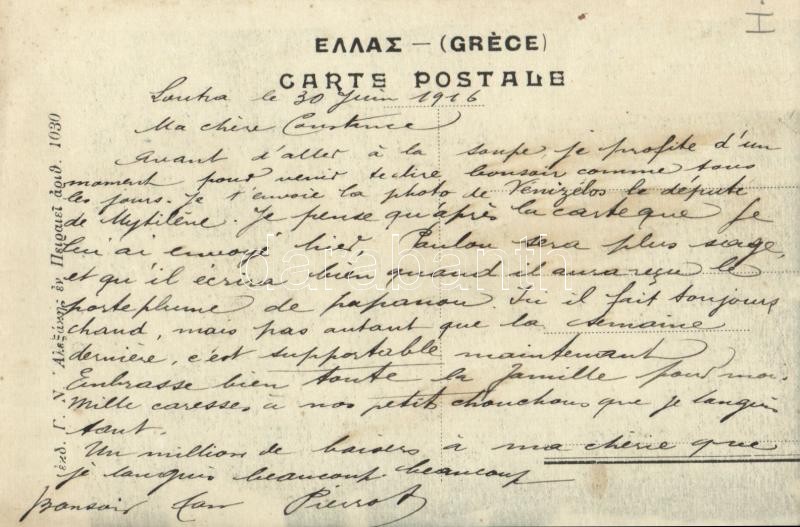 I
ΕΛΛΑΣ — (GRÈCE)
CARTE POSTALE
Loutra le 30 Juin 1916
Ma chère Constance
Avant d'aller à la soupe, je profite d'un
moment pour venir te dire bonsoir comme tous
les jours. Je t'envoie la photo de Venizélos le député
de Mytilène. Je pense qu'après la carte que je
lui ai envoyé hier, Paulou sera plus sage,
et qu'il écrira bien quand il aura reçu le
porteplume de papanou Ici il fait toujours
chaud, mais pas autant que la semaine
dernière, c'est supportable maintenant
Embrasse bien toute la famille pour moi.
Mille caresses à nos petits chouchous que je languis
tant.
Un million de baisers à ma chérie que
je languis beaucoup beaucoup
Bonsoir Ton Pierrot
ἐκδ. Γ. Ν. Ἀλεξάκης ἐν Πειραιεῖ ἀριθ. 1030
databanth